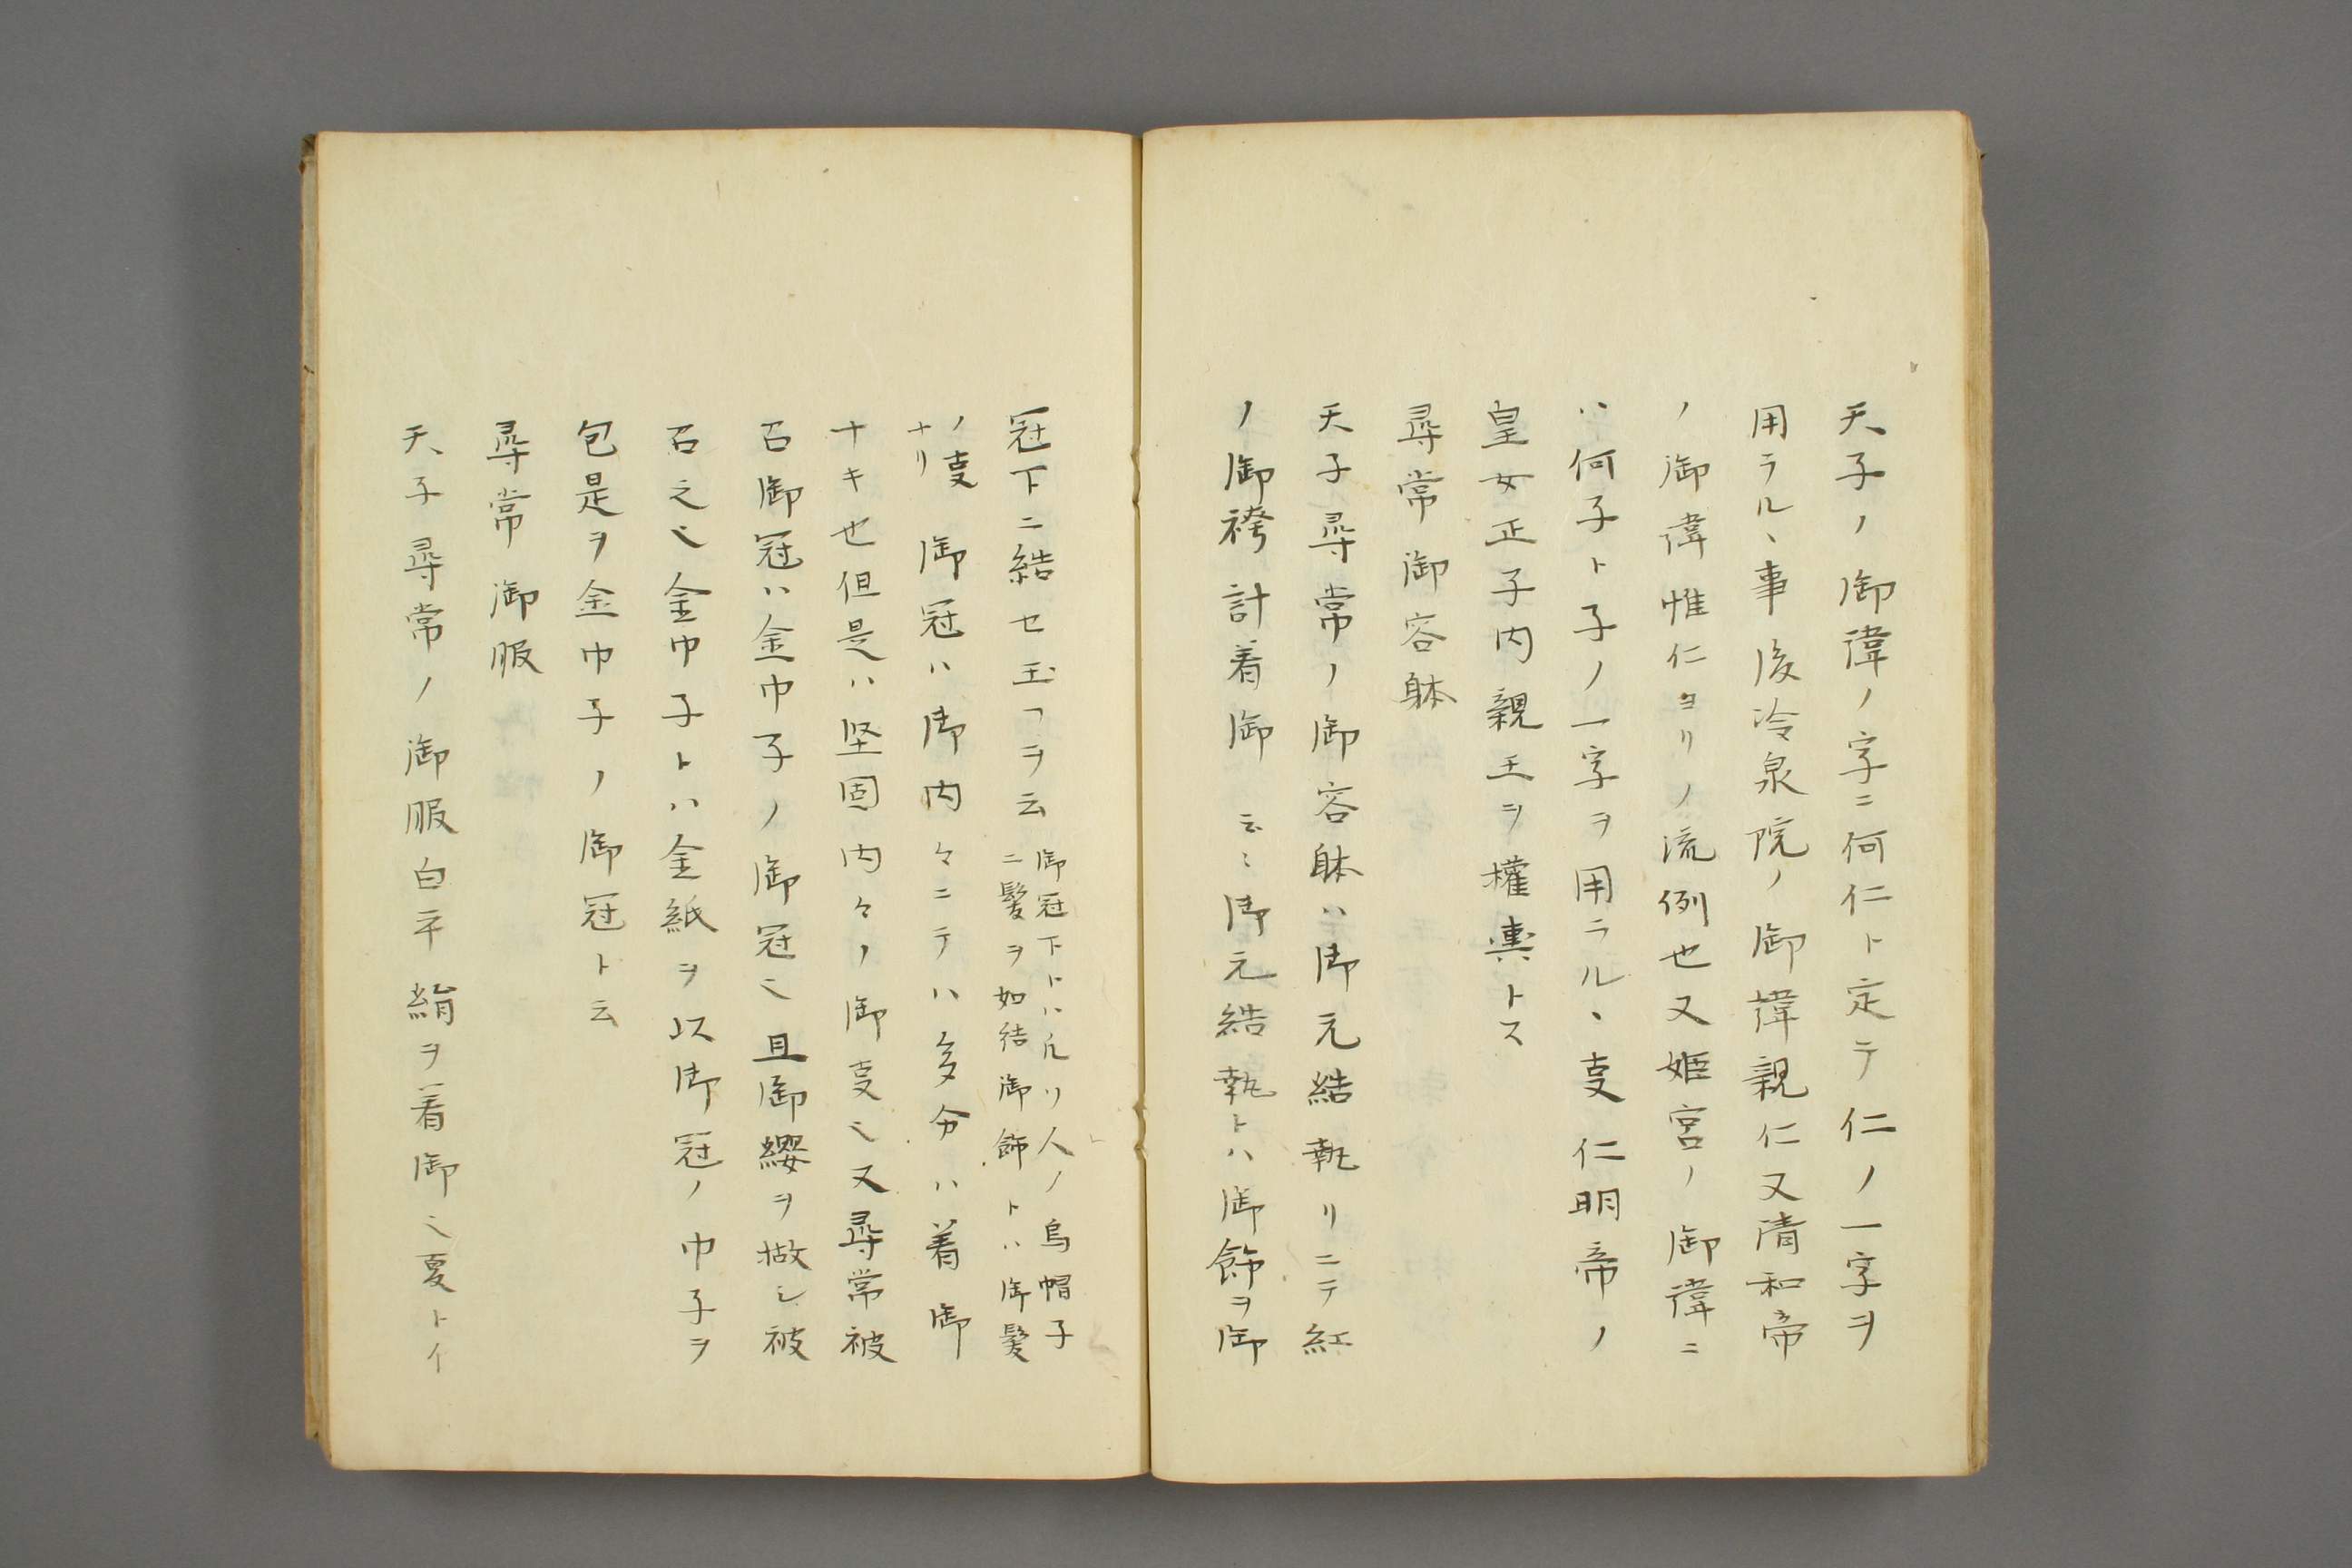 天子ノ御諱ノ字ニ何仁ト定テ仁ノ一字ヲ
用ラル、事後冷泉院ノ御諱親仁又清和帝
ノ御諱惟仁ヨリノ流例也又姫宮ノ御諱ニ
ハ何子ト子ノ一字ヲ用ラル、㕝仁明帝ノ
皇女正子内親王ヲ權輿トス
尋常御容躰
天子尋常ノ御容躰ハ御元結執リニテ紅
ノ御袴計着御 云〻御元結執トハ御餝ヲ御
冠下ニ結セ玉フヲ云
御冠下トハ凡リ人ノ烏帽子
ニ髪ヲ如結御餝トハ御髪
ノ㕝
ナリ
御冠ハ御内々ニテハ多分ハ着御
ナキ也但是ハ堅固内々ノ御㕝也又尋常被
召御冠ハ金巾子ノ御冠也且御纓ヲ撤シ被
召之也金巾子トハ金紙ヲ以御冠ノ巾子ヲ
包是ヲ金巾子ノ御冠ト云
尋常御服
天子尋常ノ御服白平絹ヲ着御也夏トイ